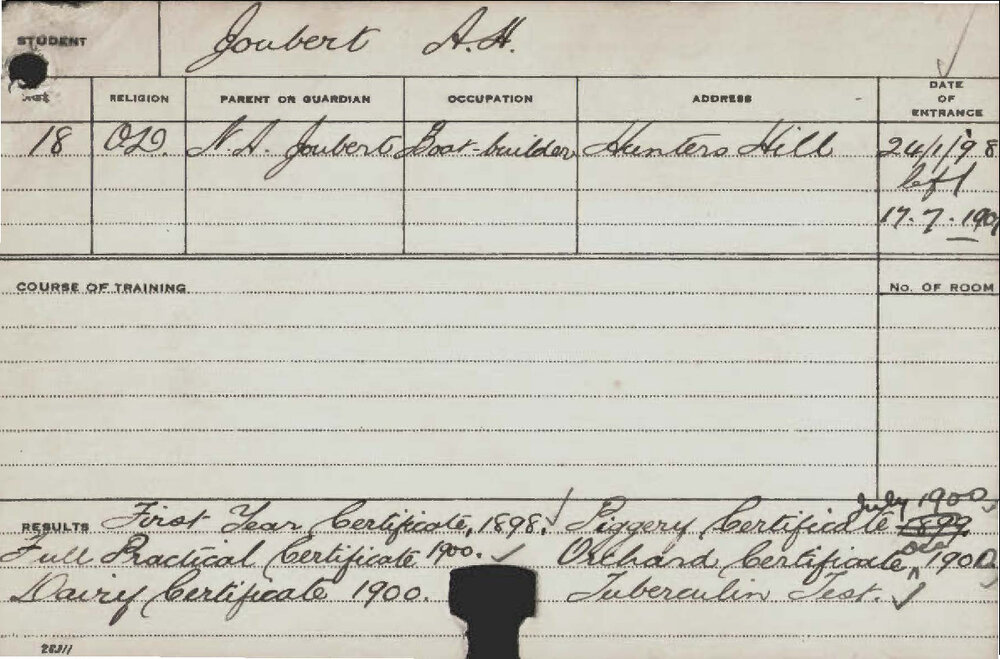 STUDENT Joubert A. H.
RELIGION PARENT OR GUARDIAN OCCUPATION ADDRESS DATE OF ENTRANCE
18 N. A. Joubert Boat-builder Hunters Hill 24/1/98
left
17.7.190
COURSE OF TRAINING No. OF ROOM
July 1900
RESULTS First Year Certificate, 1898. Piggery Certificate 1899
Full Practical Certificate 1900. Orchard Certificate, 1900
Dairy Certificate 1900. Tuberculin Test.